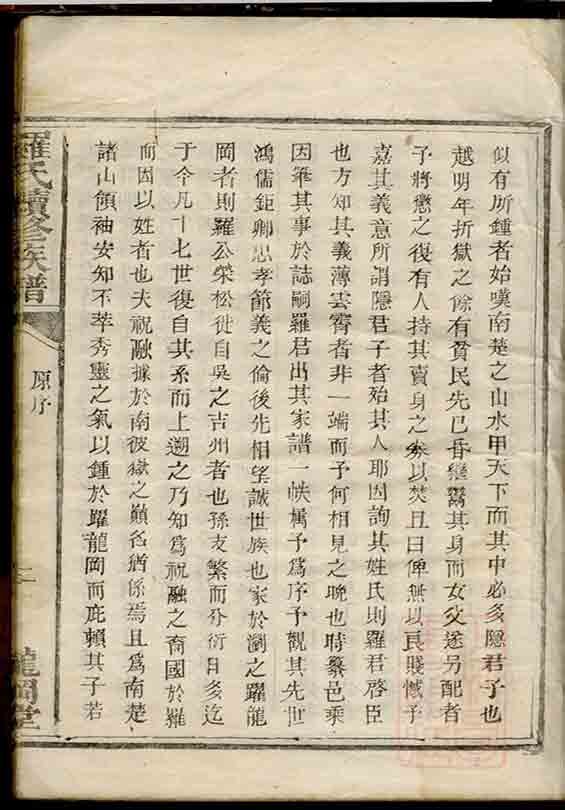 似有所鍾者始嘆南楚之山水甲天下而其中必多隱君子也
越明年折獄之餘有貧民先已昏戀鬻其身而女父遂另配者
予將懲之復有人持其賣身之券以焚且曰俾無以良賤憾予
嘉其義意所謂隱君子者殆其人耶因詢其姓氏則羅君啓臣
也方知其義薄雲霄者非一端而予何相見之晚也時纂邑乘
因舉其事於誌嗣羅君出其家譜一帙屬予爲序予觀其先世
鴻儒鉅卿忠孝節義之倫後先相望誠世族也家於瀏之躍龍
岡者則羅公榮松徙自吳之吉州者也孫支繁而分衍日多迄
于今凡十七世復自其系而上遡之乃知爲祝融之裔國於羅
而因以姓者也夫祝融據於南彼嶽之巔名猶係焉且爲南楚
諸山領袖安知不萃秀靈之氣以鍾於躍龍岡而庇賴其子若
羅氏續修族譜
原序
二
龍岡堂